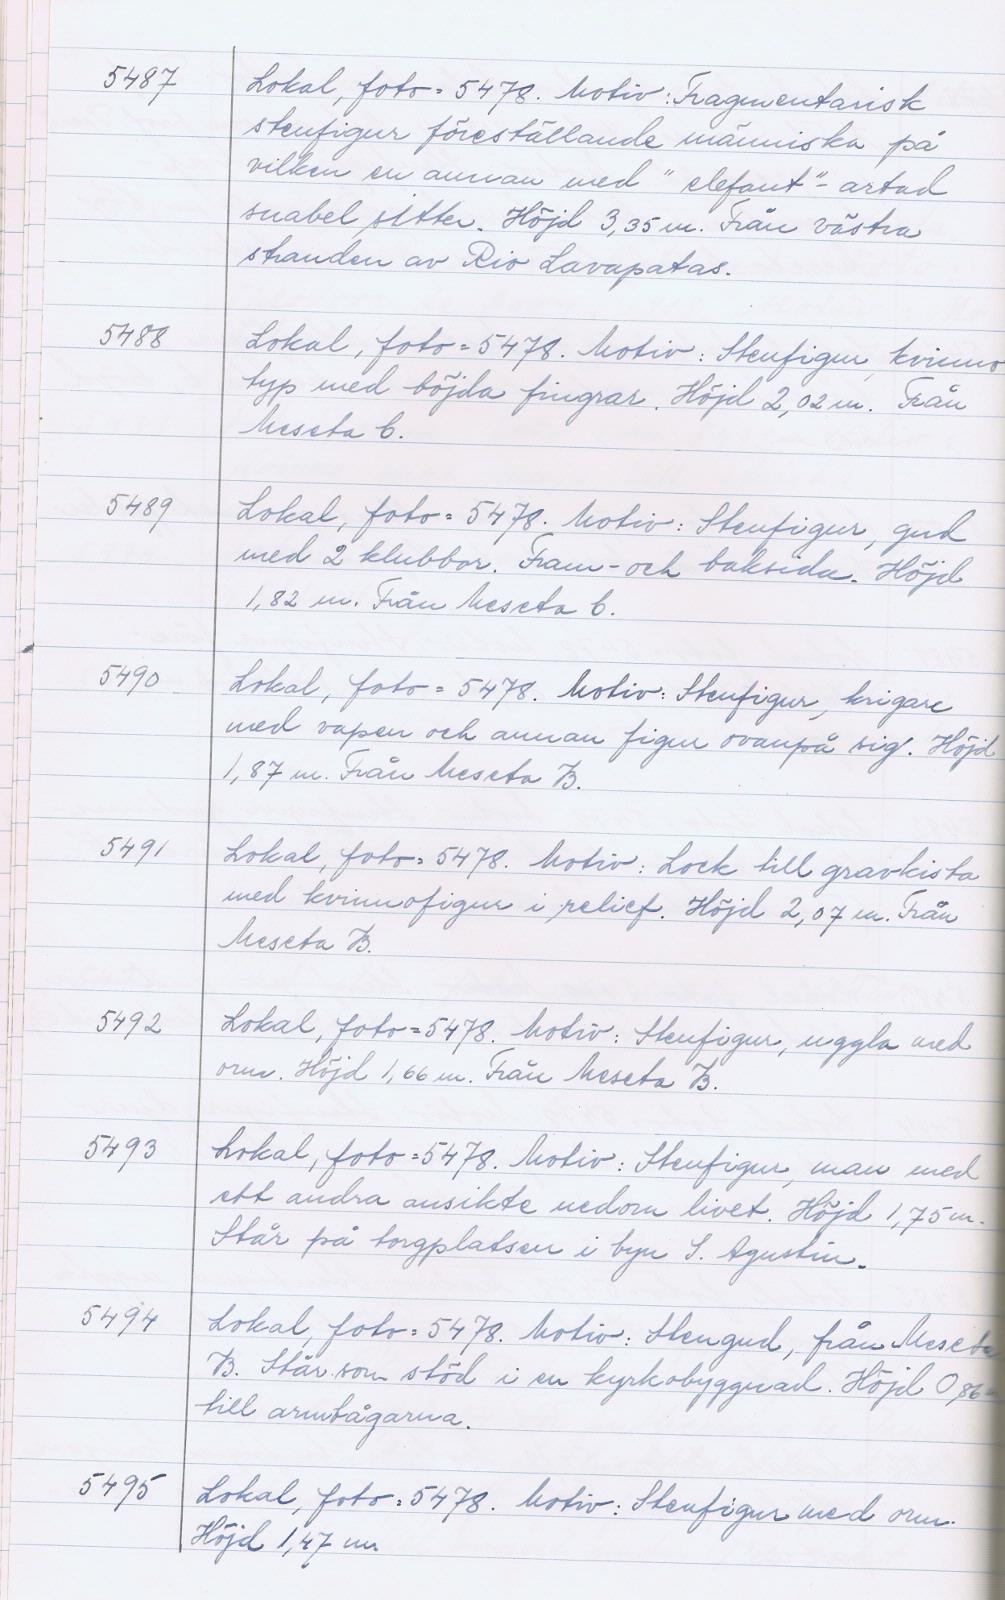 5487 Lokal, foto = 5478. Motiv: Fragmentarisk
stenfigur föreställande människa på
vilken en annan med "elefant"-artad
snabel sitter. Höjd 3,35 m. Från västra
stranden av Rio Lavapatas.
5488 Lokal, foto = 5478. Motiv: Stenfigur, kvinno
typ med böjda fingrar. Höjd 2,02 m. Från
Meseta C.
5489 Lokal, foto = 5478. Motiv: Stenfigur, gud
med 2 klubbor. Fram- och baksida. Höjd
1,82 m. Från Meseta C.
5490 Lokal, foto = 5478. Motiv: Stenfigur, krigare
med vapen och annan figur ovanpå sig. Höjd
1,87 m. Från Meseta B.
5491 Lokal, foto = 5478. Motiv: Lock till gravkista
med kvinnofigur i relief. Höjd 2,07 m. Från
Meseta B.
5492 Lokal, foto = 5478. Motiv: Stenfigur, uggla med
orm. Höjd 1,66 m. Från Meseta B.
5493 Lokal, foto = 5478. Motiv: Stenfigur, man med
ett andra ansikte nedom livet. Höjd 1,75 m.
Står på torgplatsen i byn S. Agustin.
5494 Lokal, foto = 5478. Motiv: Stengud, från Meseta
B. Står som stöd i en kyrkobyggnad. Höjd 0,86 m
till armbågarna.
5495 Lokal, foto = 5478. Motiv: Stenfigur med orm.
Höjd 1,47 m.